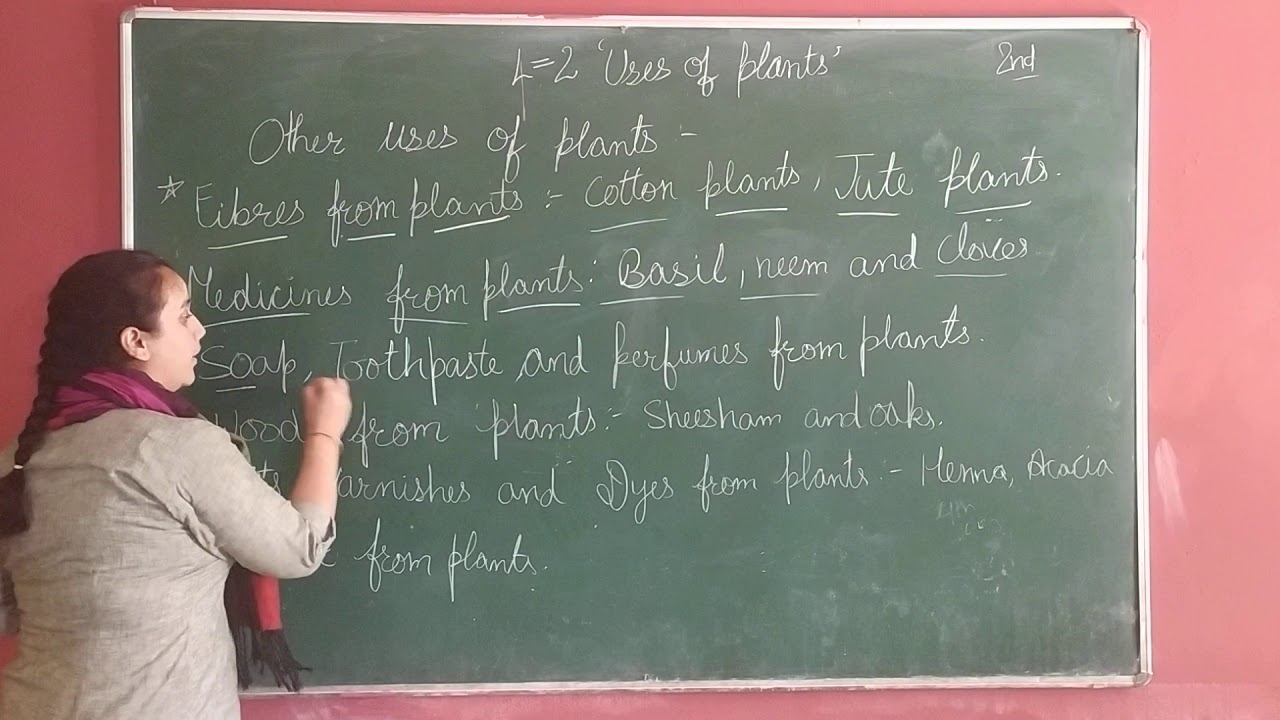 L=2 'Uses of plants' 2nd
Other uses of plants -
☆ Fibres from plants :- Cotton plants, Jute plants.
Medicines from plants : Basil, neem and Cloves
Soap, Toothpaste, and perfumes from plants.
Wood from plants :- Sheesham and oaks.
Varnishes and Dyes from plants :- Henna, Acacia
from plants.